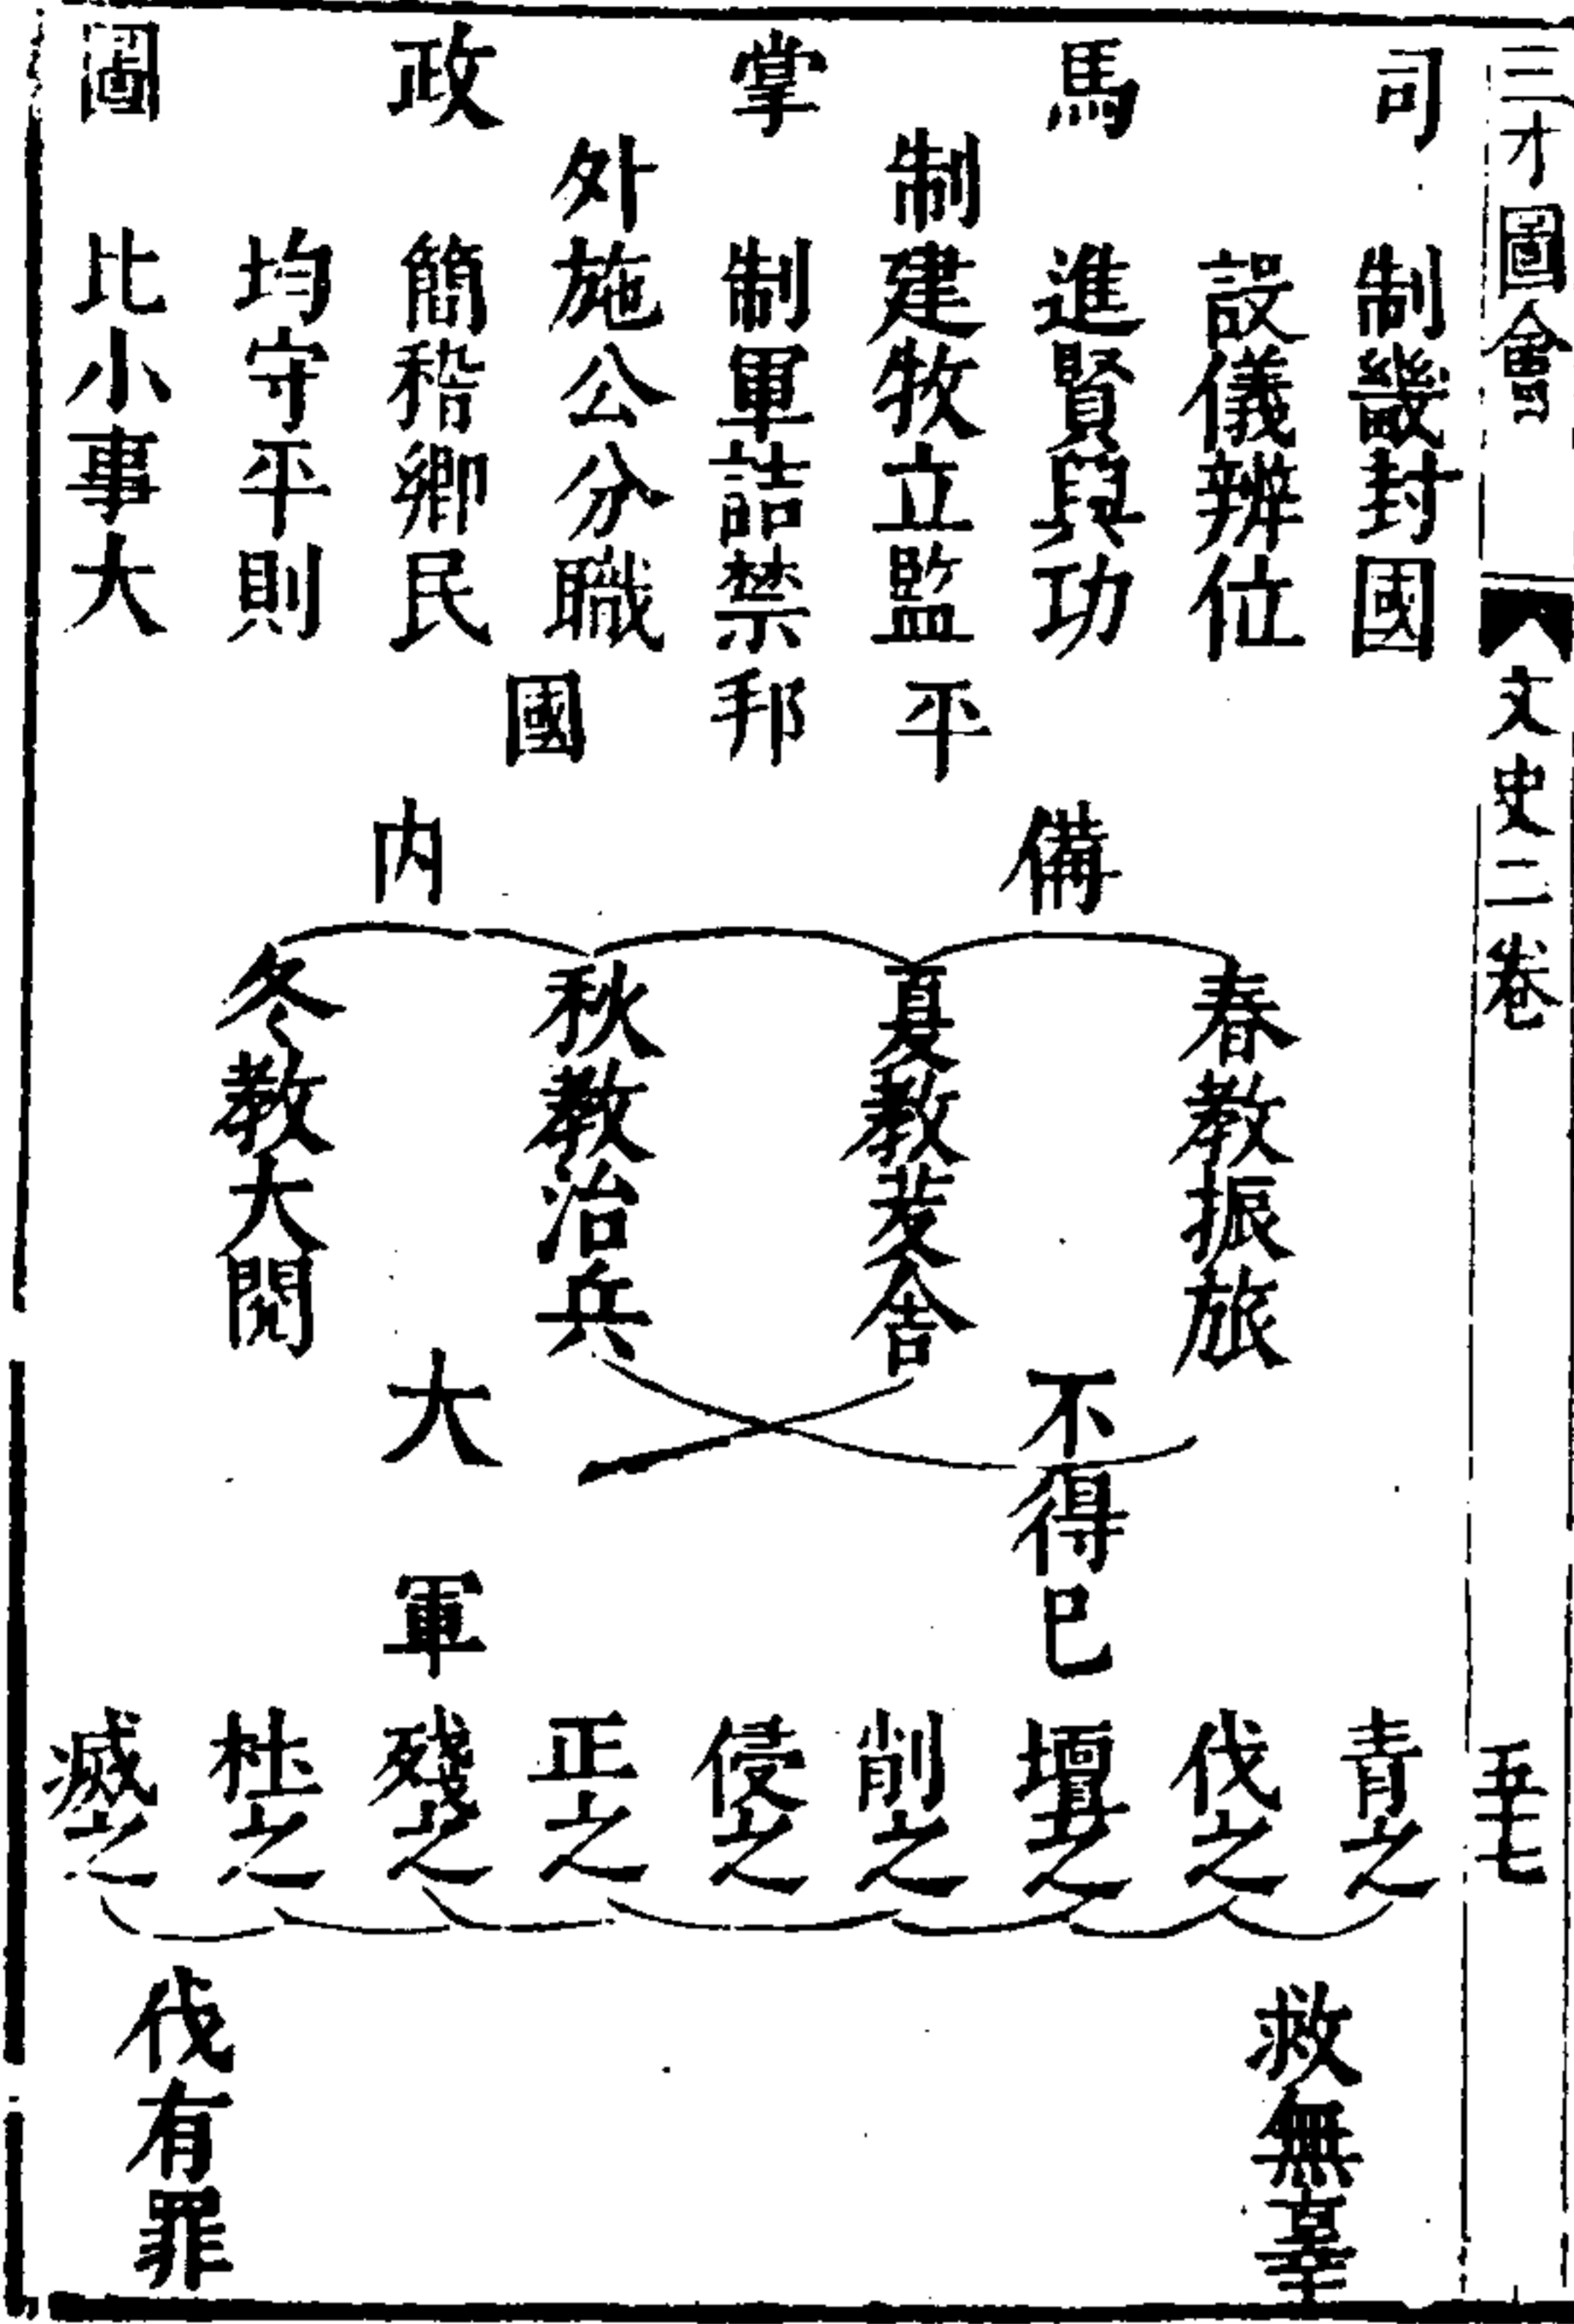 三才圖會
文史二卷
五七
司馬掌政圖
制畿封國
設儀辨位
進賢與功
制
建牧立監
制軍詰禁
外
施公分職
簡稽鄉民
均守平則
比小事大
平邦國
備內
春教振旅
夏教茇舍
秋教治兵
冬教大閱
不得已
大軍
青之
伐之
壇之
削之
侵之
正之
殘之
杜之
滅之
救無辜
伐有罪